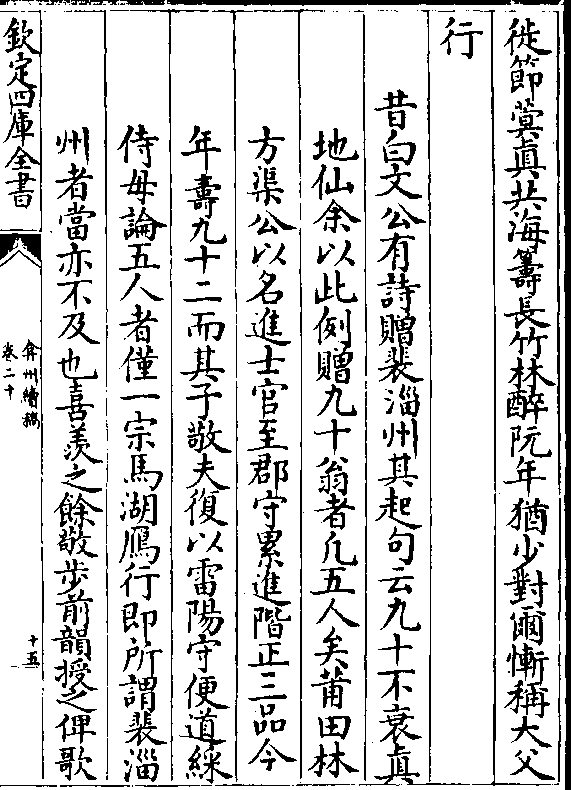 徙節蓂眞共海籌長竹林醉阮年猶少對爾慚稱大父
行
昔白文公有詩贈裴淄州其起句云九十不衰眞
地仙余以此例贈九十翁者凡五人矣莆田林
方渠公以名進士官至郡守累進階正三品今
年壽九十二而其子敬夫復以雷陽守便道綵
侍毋論五人者僅一宗馬湖鴈行即所謂裴淄
州者當亦不及也喜羨之餘敬步前韻授之俾歌
欽定四庫全書
弇州續稿
卷二十
十五